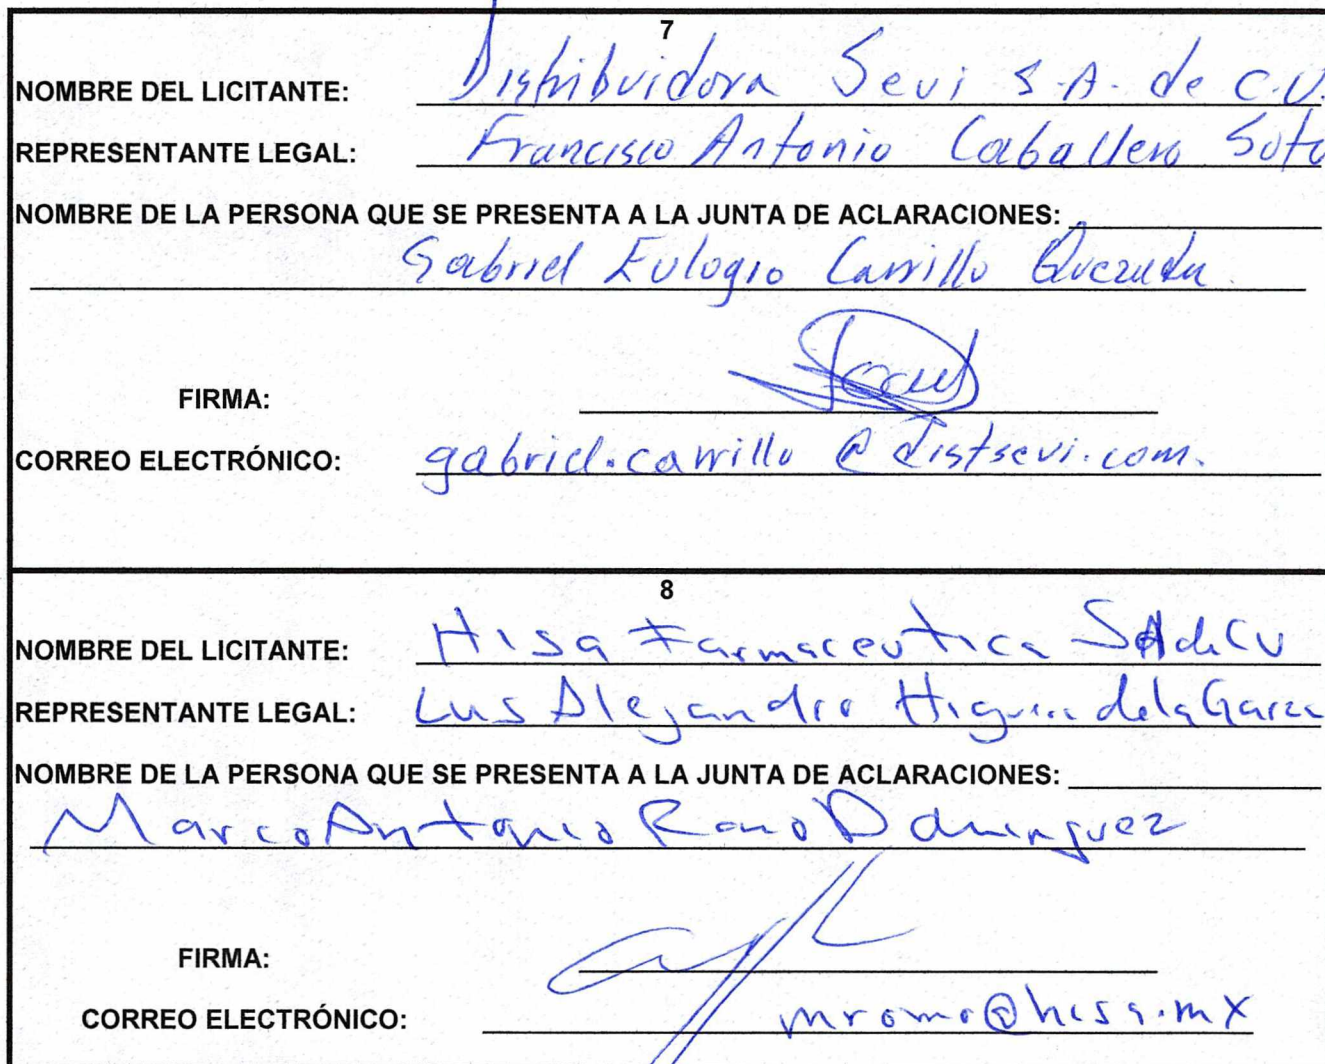 7
NOMBRE DEL LICITANTE: Distribuidora Sevi S.A. de C.V.
REPRESENTANTE LEGAL: Francisco Antonio Caballero Soto
NOMBRE DE LA PERSONA QUE SE PRESENTA A LA JUNTA DE ACLARACIONES:
Gabriel Eulogio Carrillo Quezada
FIRMA:
CORREO ELECTRÓNICO: gabriel.carrillo@distsevi.com.
8
NOMBRE DEL LICITANTE: Hisa Farmaceutica SA de CV
REPRESENTANTE LEGAL: Luis Alejandro Higuera de la Garza
NOMBRE DE LA PERSONA QUE SE PRESENTA A LA JUNTA DE ACLARACIONES:
Marco Antonio Romo Dominguez
FIRMA:
CORREO ELECTRÓNICO: mromo@hisa.mx